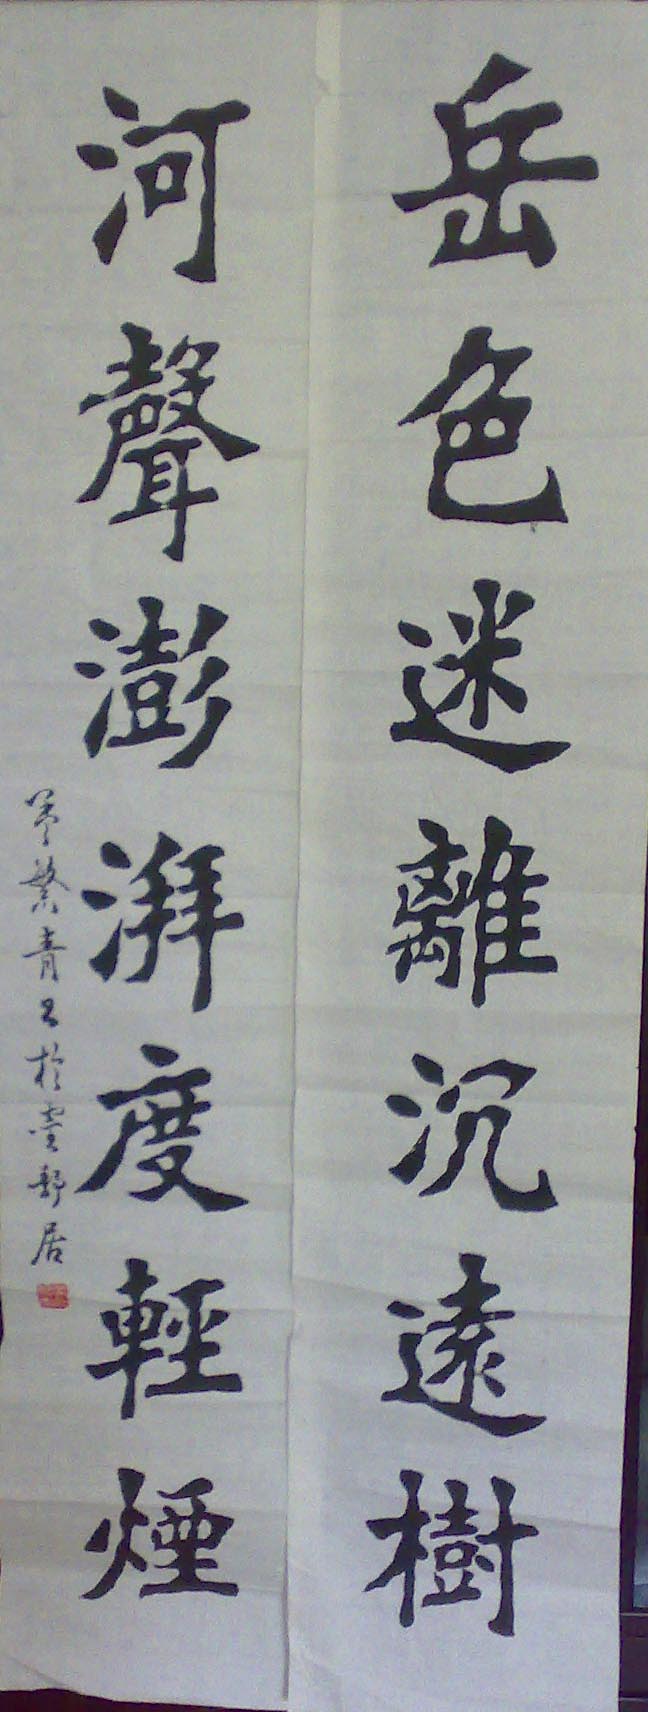 岳色迷離沉遠樹
河聲澎湃度輕煙
繁青書於雲野居